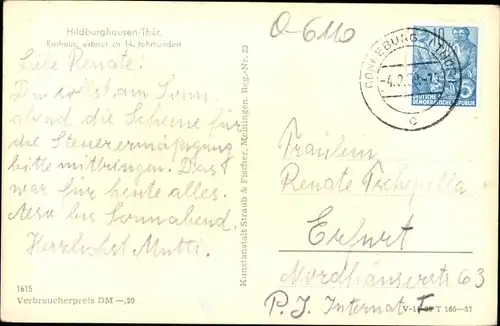 Hildburghausen/Thür.
Rathaus, erbaut im 14. Jahrhundert
Liebe Renate!
Du sollst am Sonn.
abend die Scheine für
die Steuerermäßigung
bitte mitbringen. Das
war für heute alles.
Also bis Sonnabend.
Herzlichst Mutti.
1615
Verbraucherpreis DM —,20
Kunstanstalt Straub & Fischer, Meiningen. Reg.-Nr. 23
O-6110
10
DEUTSCHE
DEMOKRATISCHE REPUBLIK
c
Fräulein
Renate
Erfurt
Nordhäuserstr 63
P. J. Internat I